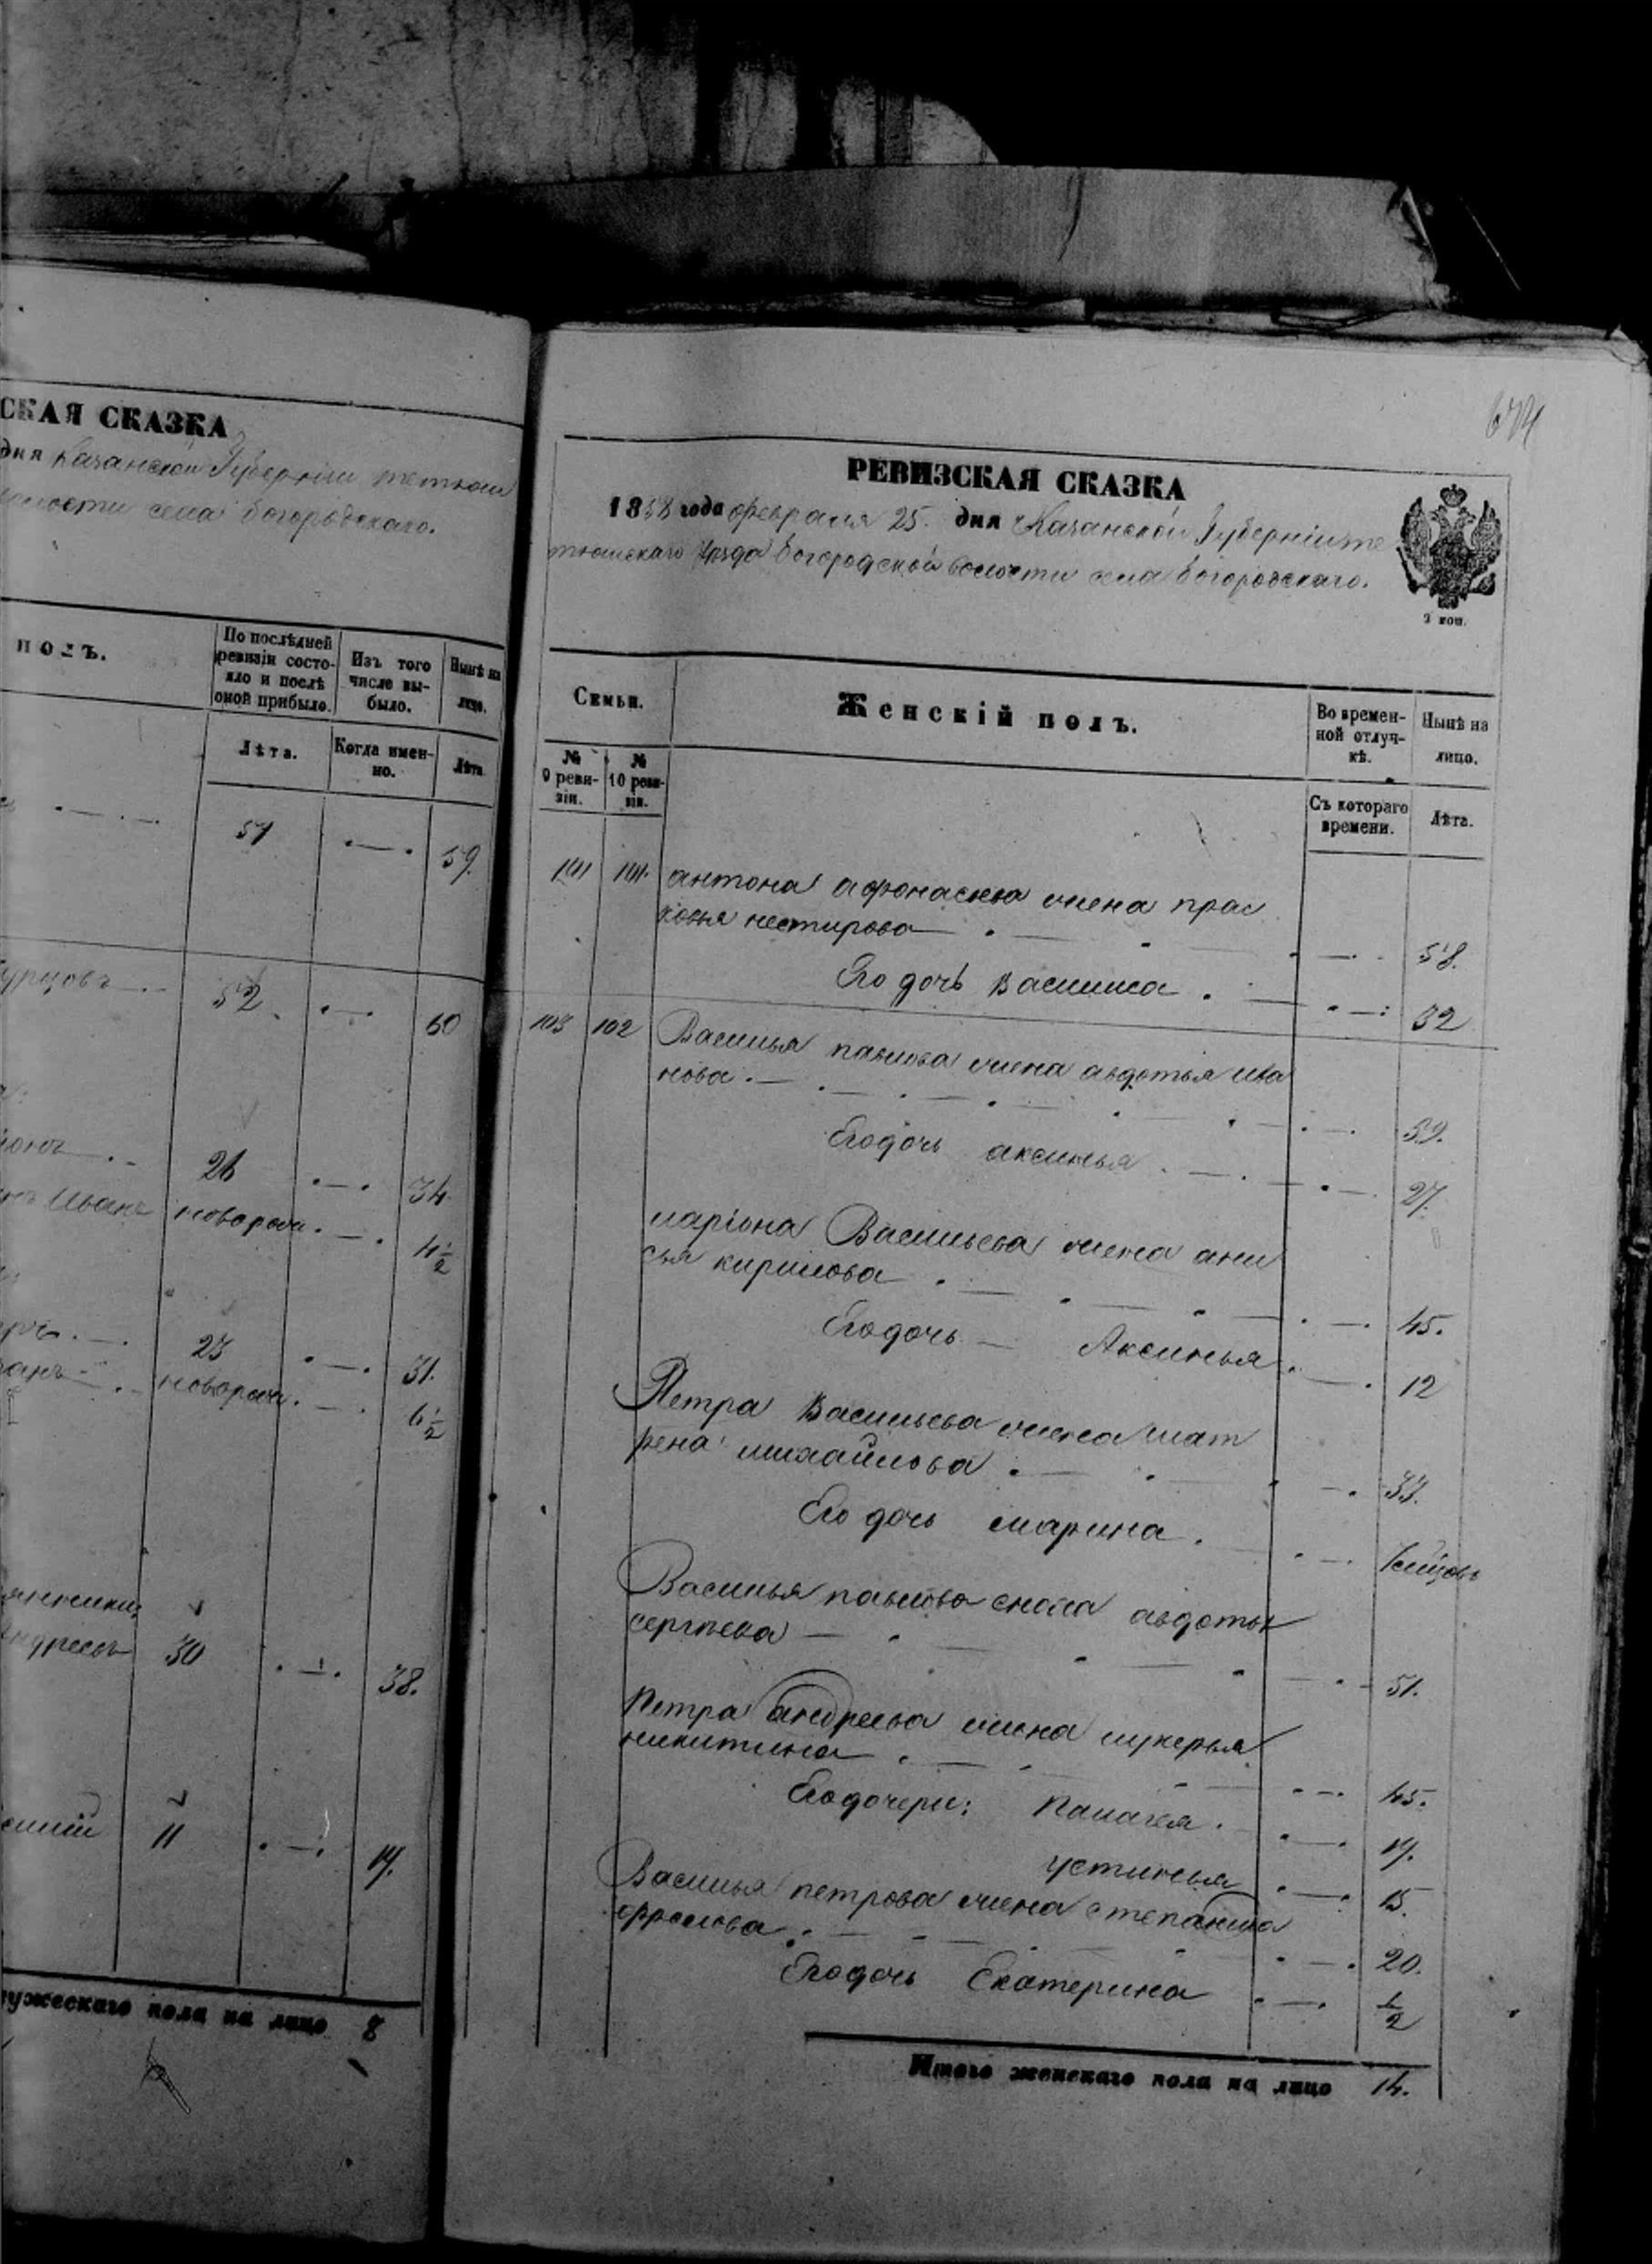 СКАЯ СКАЗКА
дня Казанской Губерніи тетюш
волости села Богородскаго.
полъ.
По послѣдней
ревизіи состо-
яло и послѣ
оной прибыло.
Изъ того
числа вы-
было.
Нынѣ на
лицо.
Лѣта.
Когда имен-
но.
Лѣта
51
59.
52
60
26
34
Иванъ новорож.
4 1/2
23
31.
новорож.
6 1/2
30
38.
11
19.
мужескаго пола на лицо 8
674
РЕВИЗСКАЯ СКАЗКА
1858 года февраля 25. дня Казанской Губерніи те
тюшскаго Уѣзда Богородской волости села Богородскаго.
3 коп.
Семьи.
Женскій полъ.
Во времен-
ной отлуч-
кѣ.
Нынѣ на
лицо.
№
9 реви-
зіи.
№
10 реви-
зіи.
Съ котораго
времени.
Лѣта.
101 101. антона афонасьева жена прас
ковья нестирова 58.
Его дочь Василиса . 32
103 102 Василья павлова жена авдотья ива
нова. 59.
Его дочь аксинья . 27.
ларіона Васильева жена ани
сья кирилова . 45.
Его дочь Аксинья . 12
Петра Васильева жена мат
рена михайлова . 33.
Его дочь марина .
Василья павлова сноха авдотья
сергѣева 51.
Петра андреева жена лукерья
никитина . 45.
Его дочери: Палагея . 19.
устинья 15.
Василья петрова жена степанида
ефролова. 20.
Его дочь Екатерина 1/2
Итого женскаго пола на лицо 14.